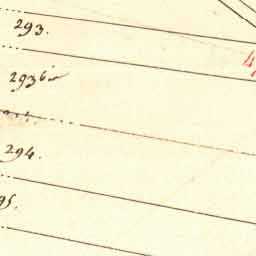 293.
4
293bis
294.
95.